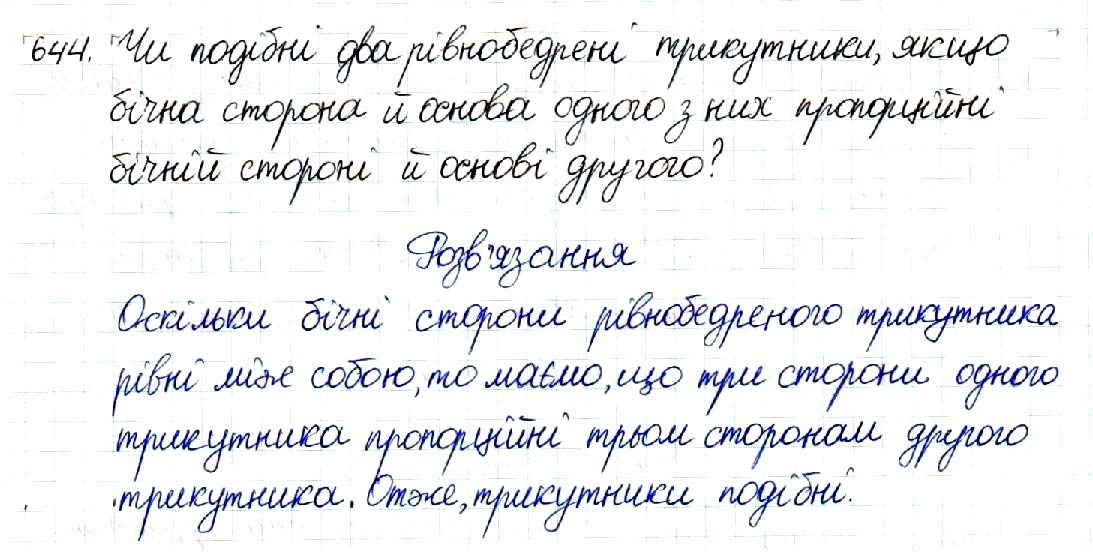 644. Чи подібні два рівнобедрені трикутники, якщо
бічна сторона й основа одного з них пропорційні
бічній стороні й основі другого?
Розв'язання
Оскільки бічні сторони рівнобедреного трикутника
рівні між собою, то маємо, що три сторони одного
трикутника пропорційні трьом сторонам другого
трикутника. Отже, трикутники подібні.